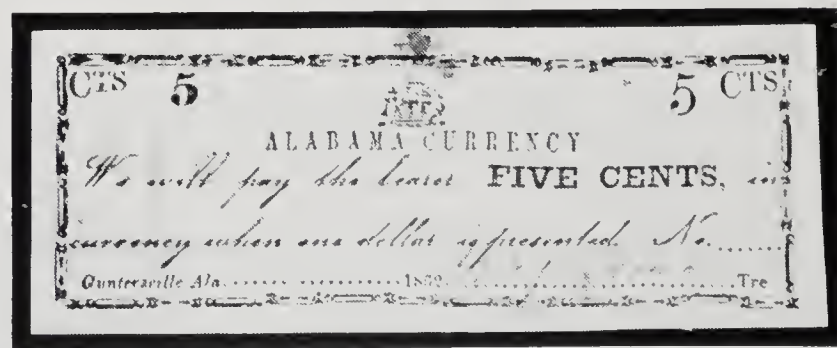 CTS 5 5 CTS
ALABAMA CURRENCY
We will pay the bearer FIVE CENTS, in
currency when one dollar is presented. No.......
Guntersville Ala....................1862.......................Tre